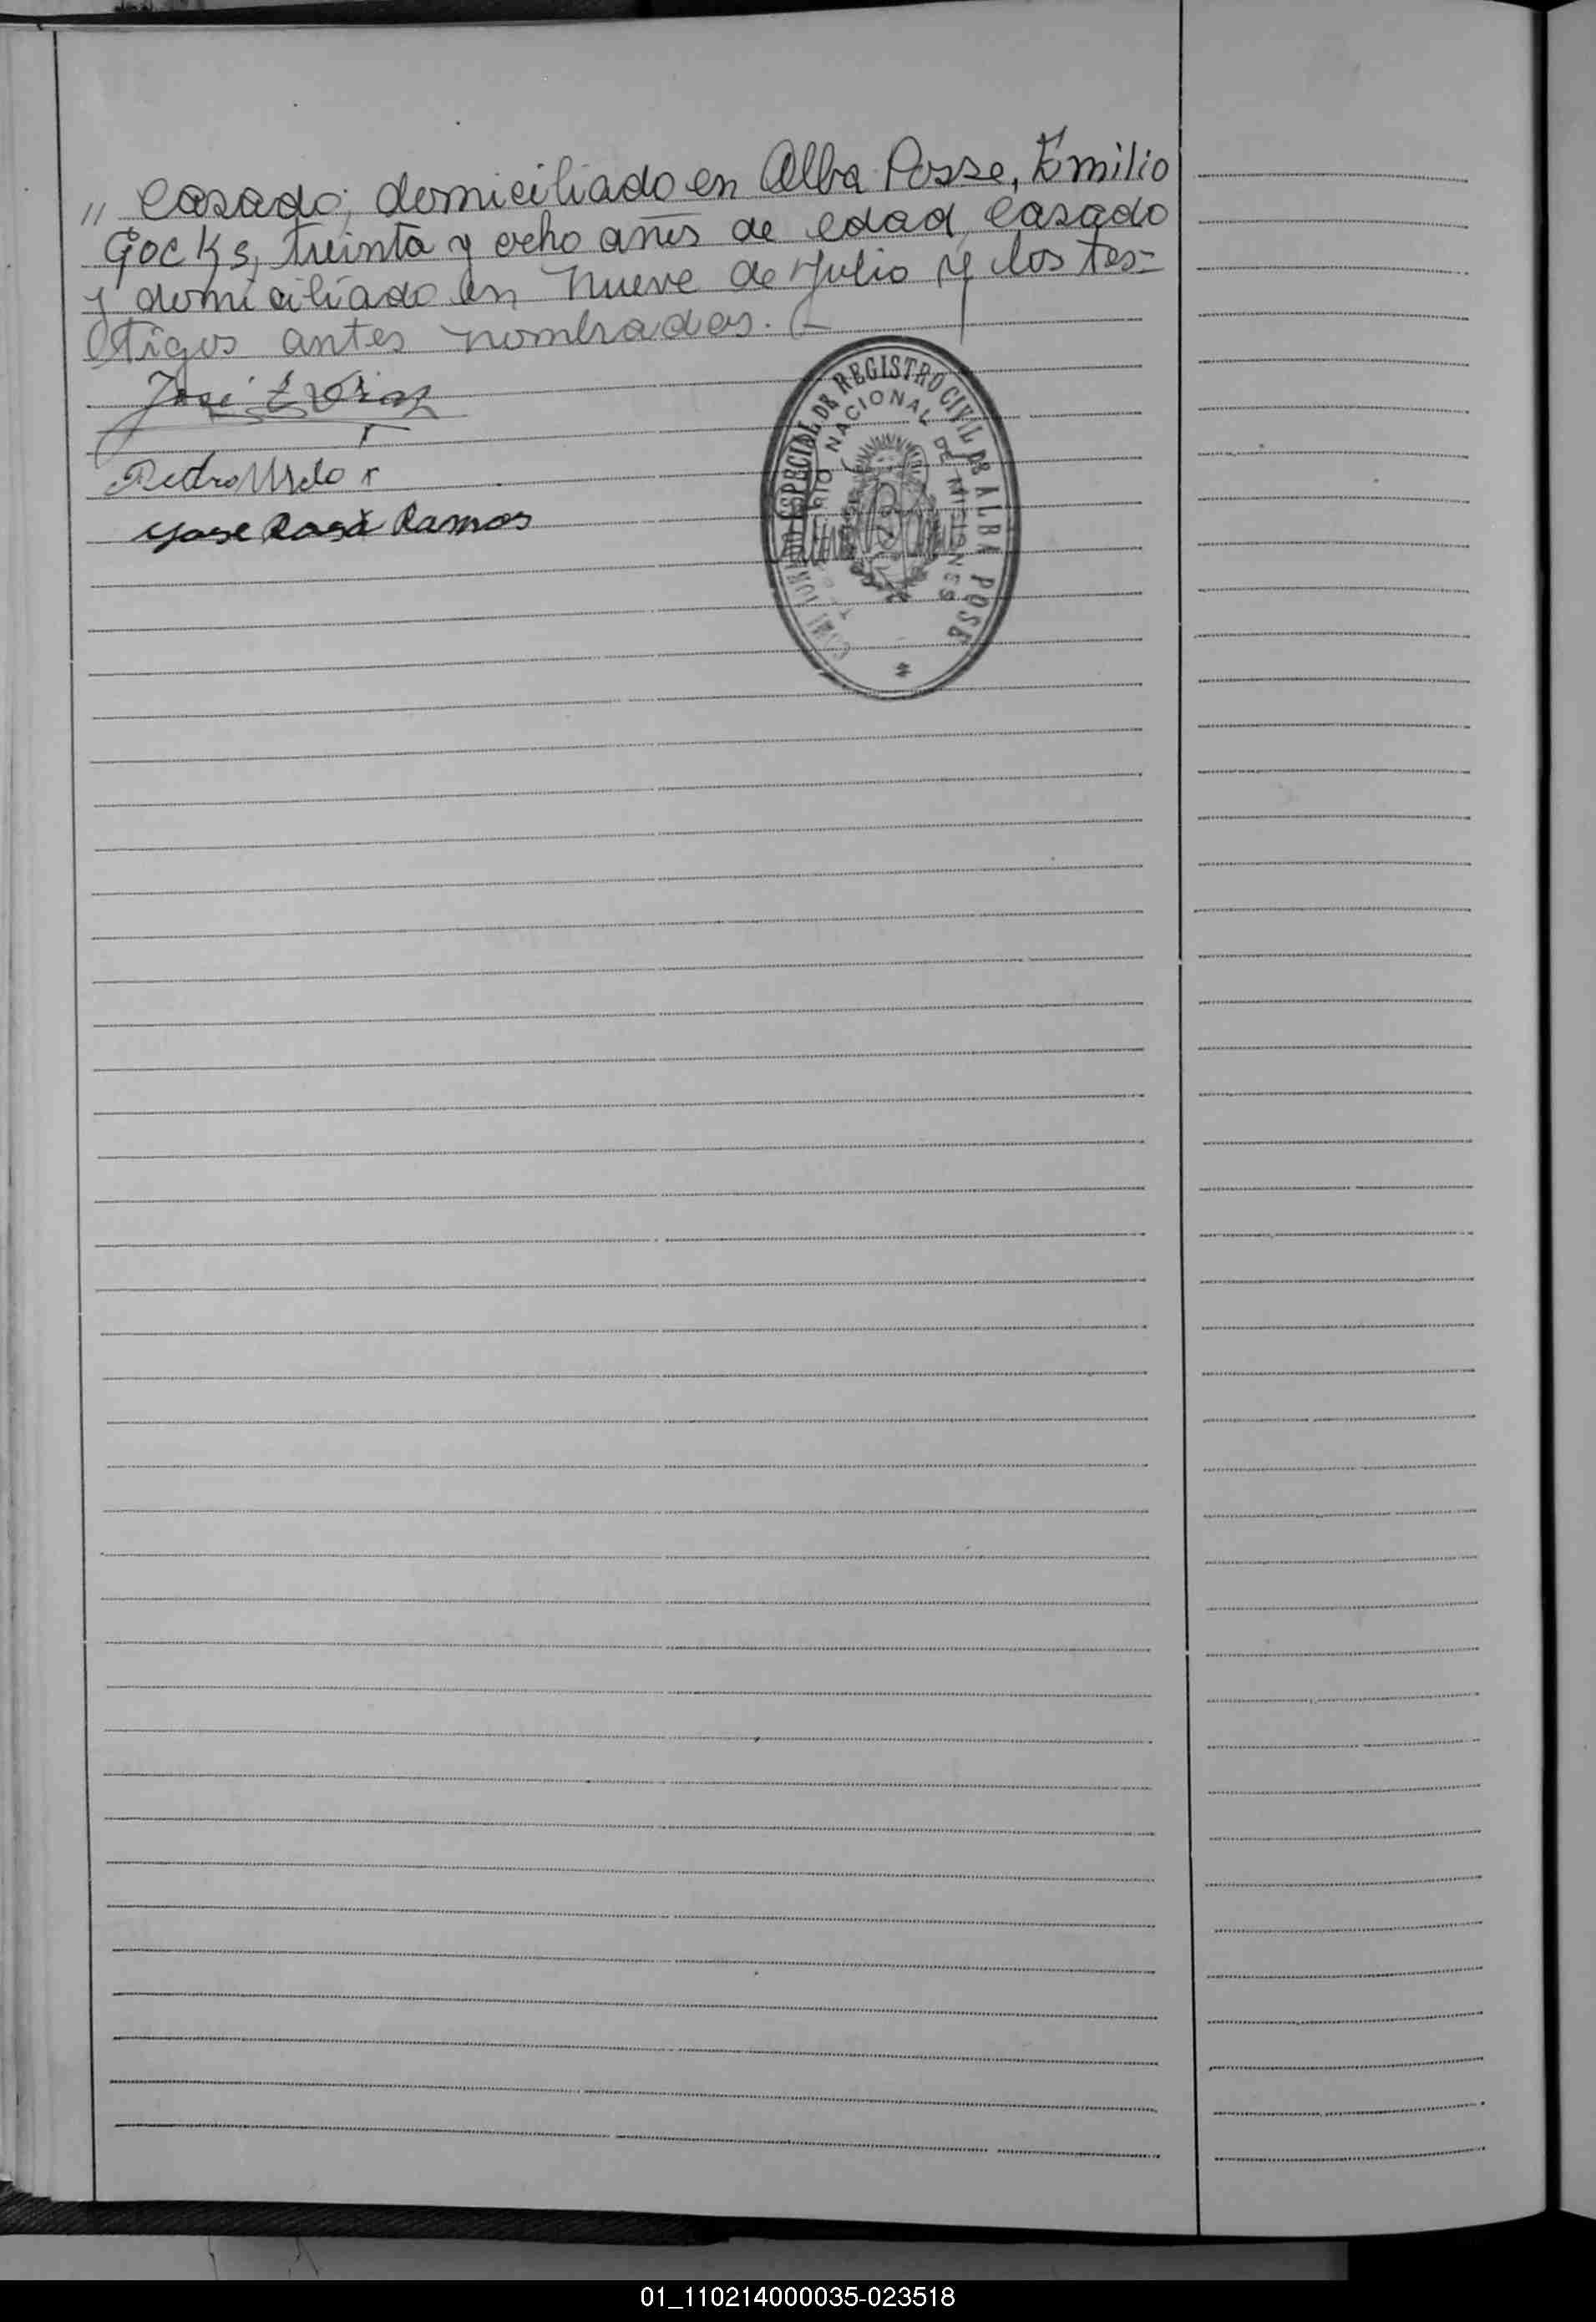 " Casado, domiciliado en Alba Posse, Emilio
Gocks, treinta y ocho años de edad, Casado
y domiciliado en Nueve de Julio y los tes=
tigos antes nombrados.
José
Pedro
Jose Rosa Ramos
ESPECIAL DE REGISTRO CIVIL DE ALBA POSE
NACIONAL DE MISIONES
01_110214000035-023518